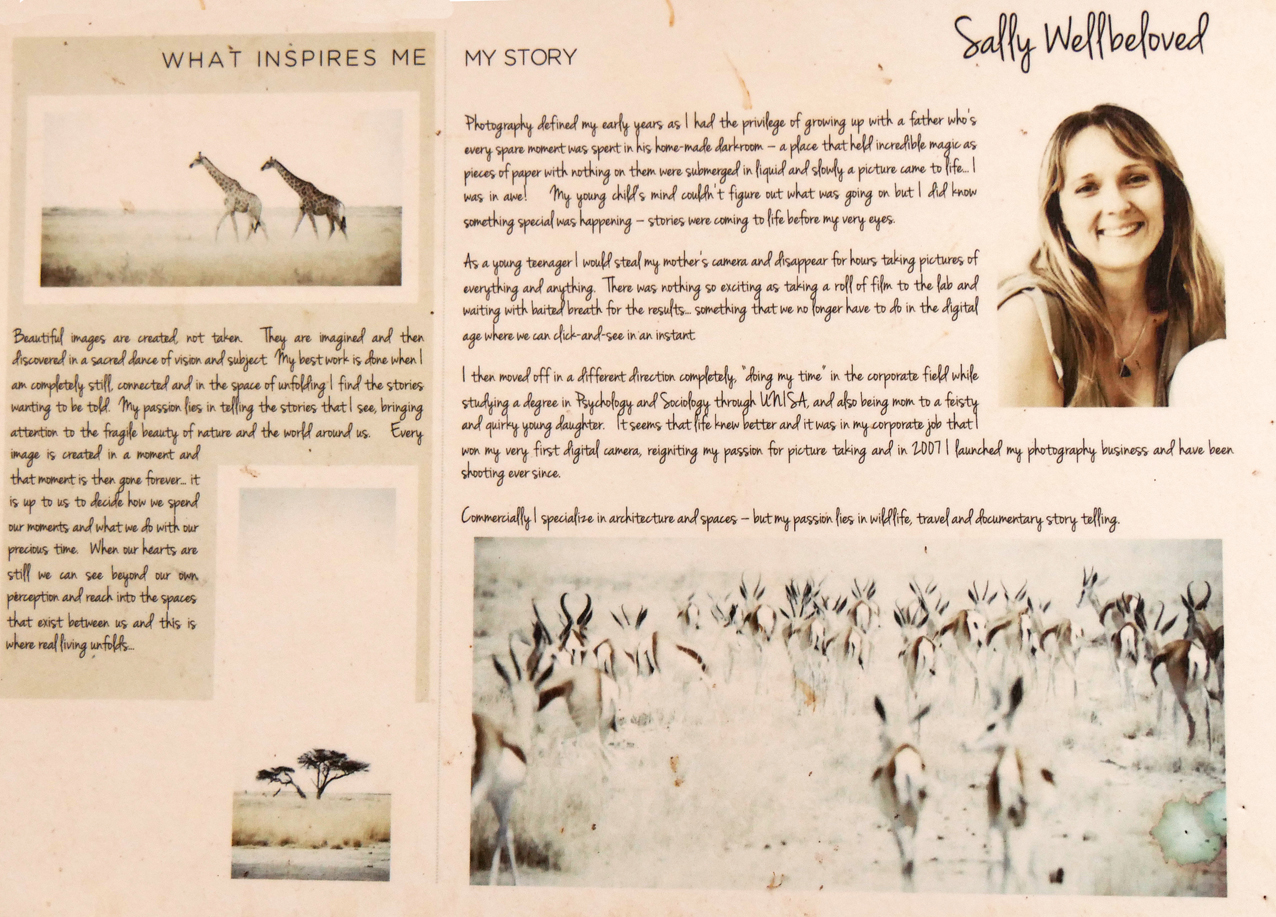 WHAT INSPIRES ME
Beautiful images are created, not taken. They are imagined and then
discovered in a sacred dance of vision and subject. My best work is done when I
am completely still, connected and in the space of unfolding I find the stories
wanting to be told. My passion lies in telling the stories that I see, bringing
attention to the fragile beauty of nature and the world around us. Every
image is created in a moment and
that moment is then gone forever... it
is up to us to decide how we spend
our moments and what we do with our
precious time. When our hearts are
still we can see beyond our own
perception and reach into the spaces
that exist between us and this is
where real living unfolds...
MY STORY
Sally Wellbeloved
Photography defined my early years as I had the privilege of growing up with a father who's
every spare moment was spent in his home-made darkroom – a place that held incredible magic as
pieces of paper with nothing on them were submerged in liquid and slowly a picture came to life... I
was in awe! My young child's mind couldn't figure out what was going on but I did know
something special was happening – stories were coming to life before my very eyes.
As a young teenager I would steal my mother's camera and disappear for hours taking pictures of
everything and anything. There was nothing so exciting as taking a roll of film to the lab and
waiting with baited breath for the results... something that we no longer have to do in the digital
age where we can click-and-see in an instant.
I then moved off in a different direction completely, "doing my time" in the corporate field while
studying a degree in Psychology and Sociology through UNISA, and also being mom to a feisty
and quirky young daughter. It seems that life knew better and it was in my corporate job that I
won my very first digital camera, reigniting my passion for picture taking and in 2007 I launched my photography business and have been
shooting ever since.
Commercially I specialize in architecture and spaces – but my passion lies in wildlife, travel and documentary story telling.